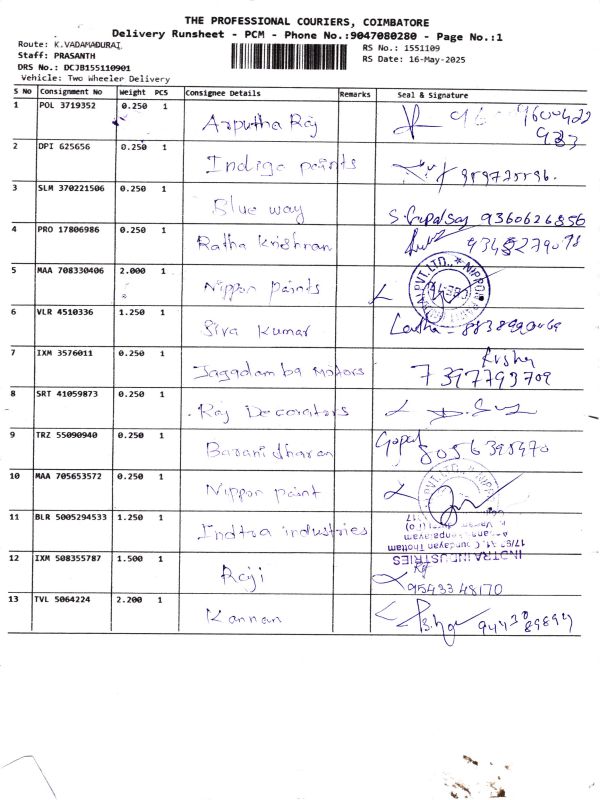 THE PROFESSIONAL COURIERS, COIMBATORE
Delivery Runsheet - PCM - Phone No.:9047080280 - Page No.:1
Route: K.VADAMADURAI
Staff: PRASANTH
DRS No.: DCJB155110901
Vehicle: Two Wheeler Delivery
RS No.: 1551109
RS Date: 16-May-2025
S No Consignment No Weight PCS Consignee Details Remarks Seal & Signature
1 POL 3719352 0.250 1 Arputha Raj
2 DPI 625656 0.250 1 Indigo paints
3 SLM 370221506 0.250 1 Blue way 9360626856
4 PRO 17806986 0.250 1 Ratha Krishnan
5 MAA 708330406 2.000 1 Nippon paints
6 VLR 4510336 1.250 1 Siva Kumar Latha
7 IXM 3576011 0.250 1 Jagadamba Motors 7397793709
8 SRT 41059873 0.250 1 Raj Decorators
9 TRZ 55090940 0.250 1 Baranidharan Gopal 8056395470
10 MAA 705653572 0.250 1 Nippon paint
11 BLR 5005294533 1.250 1 Indtra industries
INDTRA INDUSTRIES
12 IXM 508355787 1.500 1 Raji 9543348170
13 TVL 5064224 2.200 1 Kannan